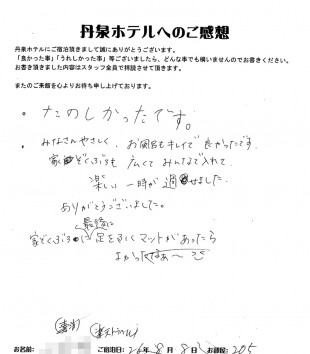 丹泉ホテルへのご感想
丹泉ホテルにご宿泊頂きまして誠にありがとうございます。
「良かった事」「うれしかった事」等ございましたら、どんな事でも構いませんのでお書きください。
お書き頂きました内容はスタッフ全員で拝読させて頂きます。
またのご来館を心よりお待ち申し上げております。
・たのしかったです。
・みなさんやさしく、お風呂もキレイで良かったです
家ぞくぶろも広くてみんなで入れて、
楽しい一時が過せました。
ありがとうございました。
最後に
家ぞくぶろに足をふくマットがあったら
よかったなぁ〜
(楽天トラベル)
お名前: ご宿泊日: 26年8月8日 お部屋: 205